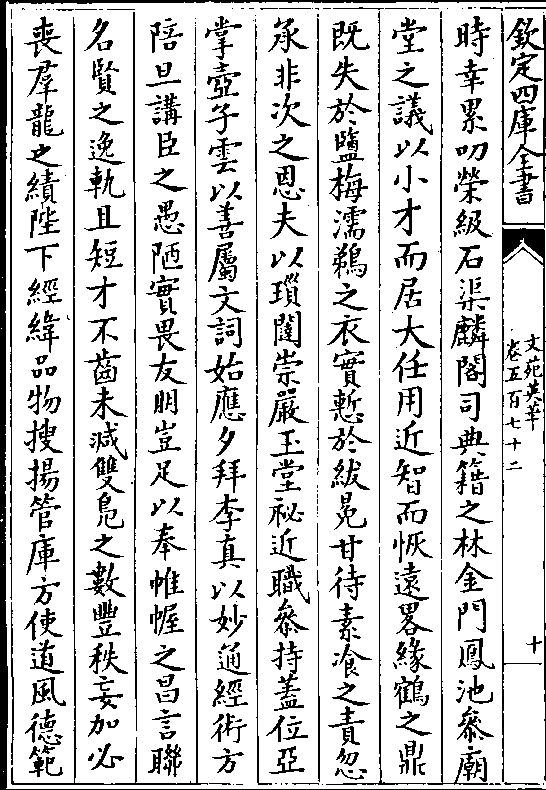 欽定四庫全書
文苑英華
卷五百七十二
十
時幸累叨榮級石渠麟閣司典籍之林金門鳳池叅廟
堂之議以小才而居大任用近智而恢遠畧緣鶴之鼎
既失於鹽梅濡鵜之衣實慙於紱冕甘待素飡之責忽
承非次之恩夫以瑣闥崇嚴玉堂祕近職叅持蓋位亞
掌壺子雲以善屬文詞始應夕拜李真以妙通經術方
陪旦講臣之愚陋實畏友朋豈足以奉帷幄之昌言聯
名賢之逸軌且短才不齒未減雙鳬之數豐秩妄加必
喪羣龍之績陛下經緯品物搜揚管庫方使道風德範